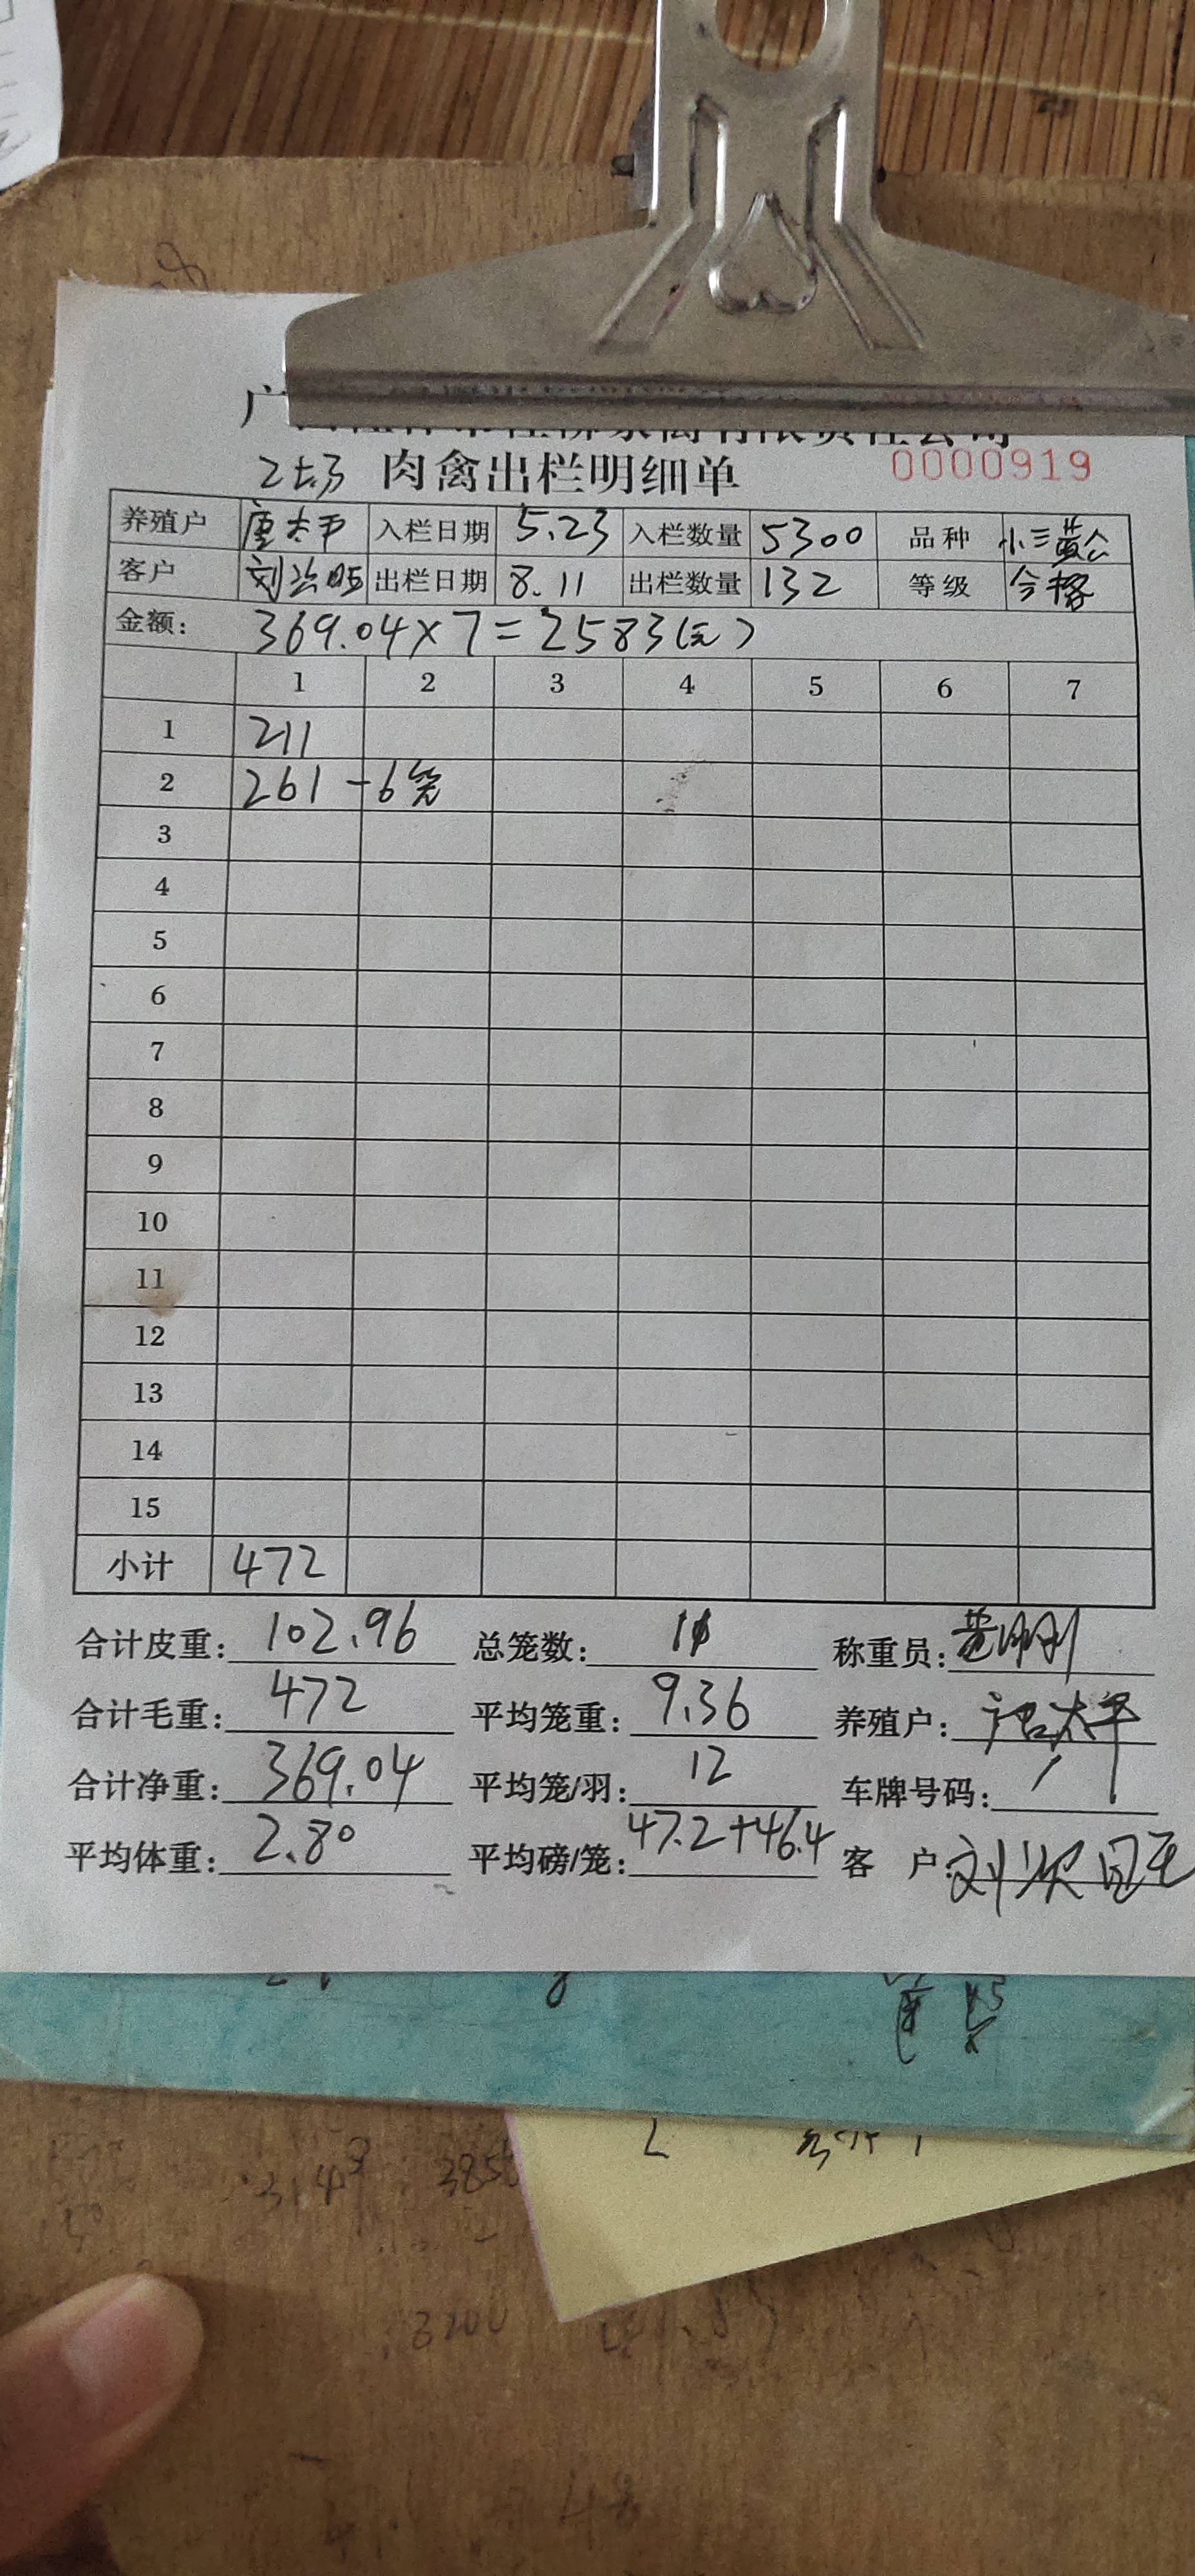 肉禽出栏明细单 0000919
养殖户 唐太平 入栏日期 5.23 入栏数量 5300 品种 小三黄公
客户 出栏日期 8.11 出栏数量 132 等级 合格
金额: 369.04×7=2583(元)
1 2 3 4 5 6 7
1 211
2 261 -6笼
3
4
5
6
7
8
9
10
11
12
13
14
15
小计 472
合计皮重: 102.96 总笼数: 11 称重员:
合计毛重: 472 平均笼重: 9.36 养殖户: 唐太平
合计净重: 369.04 平均笼/羽: 12 车牌号码: /
平均体重: 2.80 平均磅/笼: 47.2+46.4 客户: